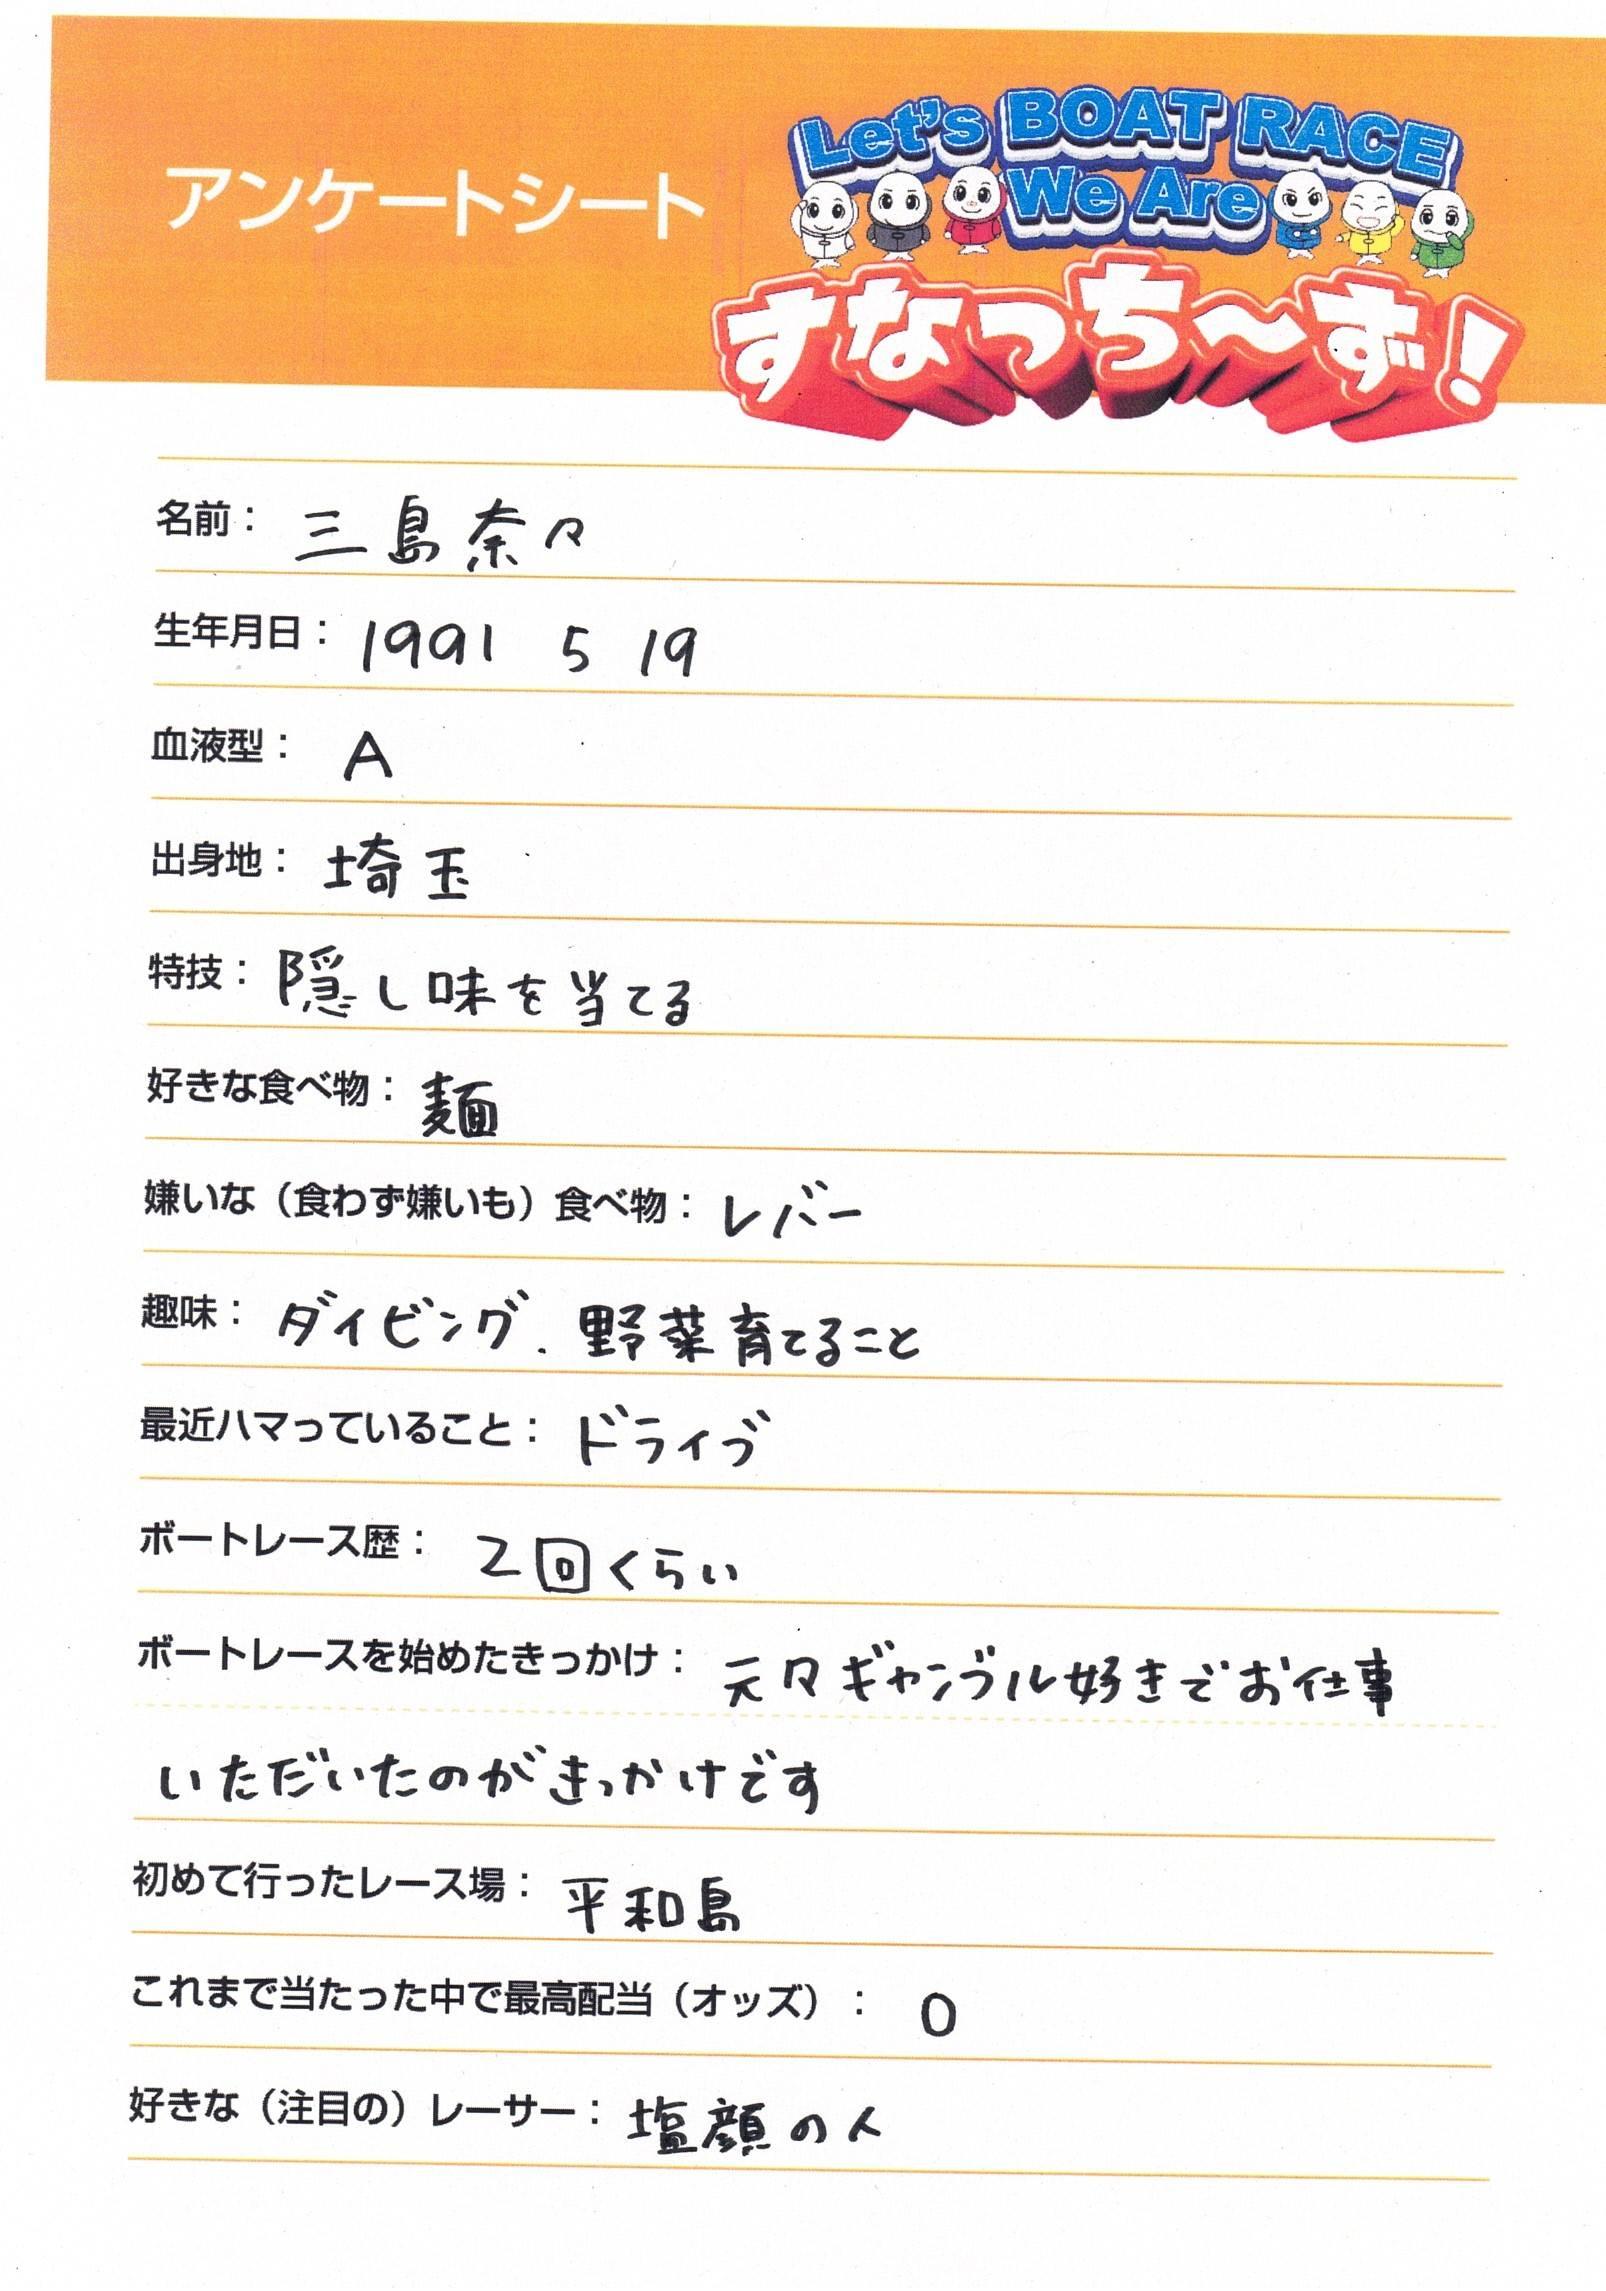 アンケートシート
Let's BOAT RACE
We Are
すなっち～ず!
名前： 三島奈々
生年月日： 1991 5 19
血液型： A
出身地： 埼玉
特技： 隠し味を当てる
好きな食べ物： 麺
嫌いな（食わず嫌いも）食べ物： レバー
趣味： ダイビング. 野菜育てること
最近ハマっていること： ドライブ
ボートレース歴： 2回くらい
ボートレースを始めたきっかけ： 元々ギャンブル好きでお仕事
いただいたのがきっかけです
初めて行ったレース場： 平和島
これまで当たった中で最高配当（オッズ）： 0
好きな（注目の）レーサー： 塩顔の人